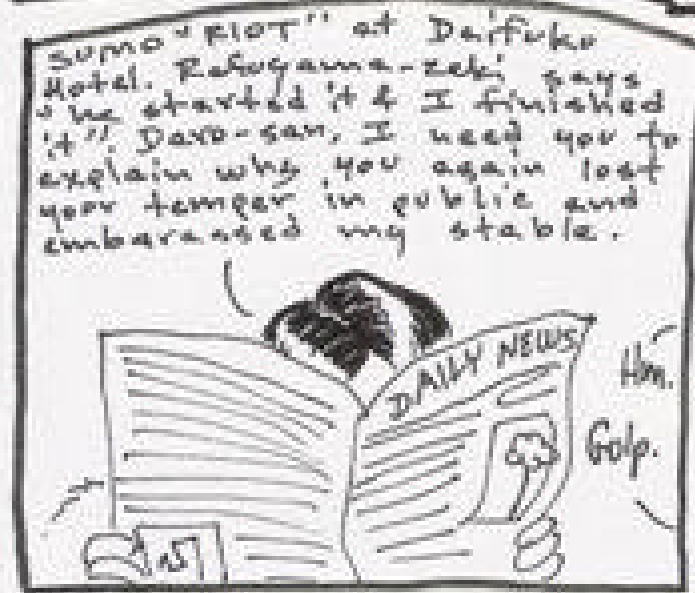 SUMO "RIOT" at Daifuku
Hotel. Rafugama-zeki says
"he started it & I finished
it". Daro-san, I need you to
explain why you again lost
your temper in public and
embarassed my stable.
DAILY NEWS
Hm.
Golp.